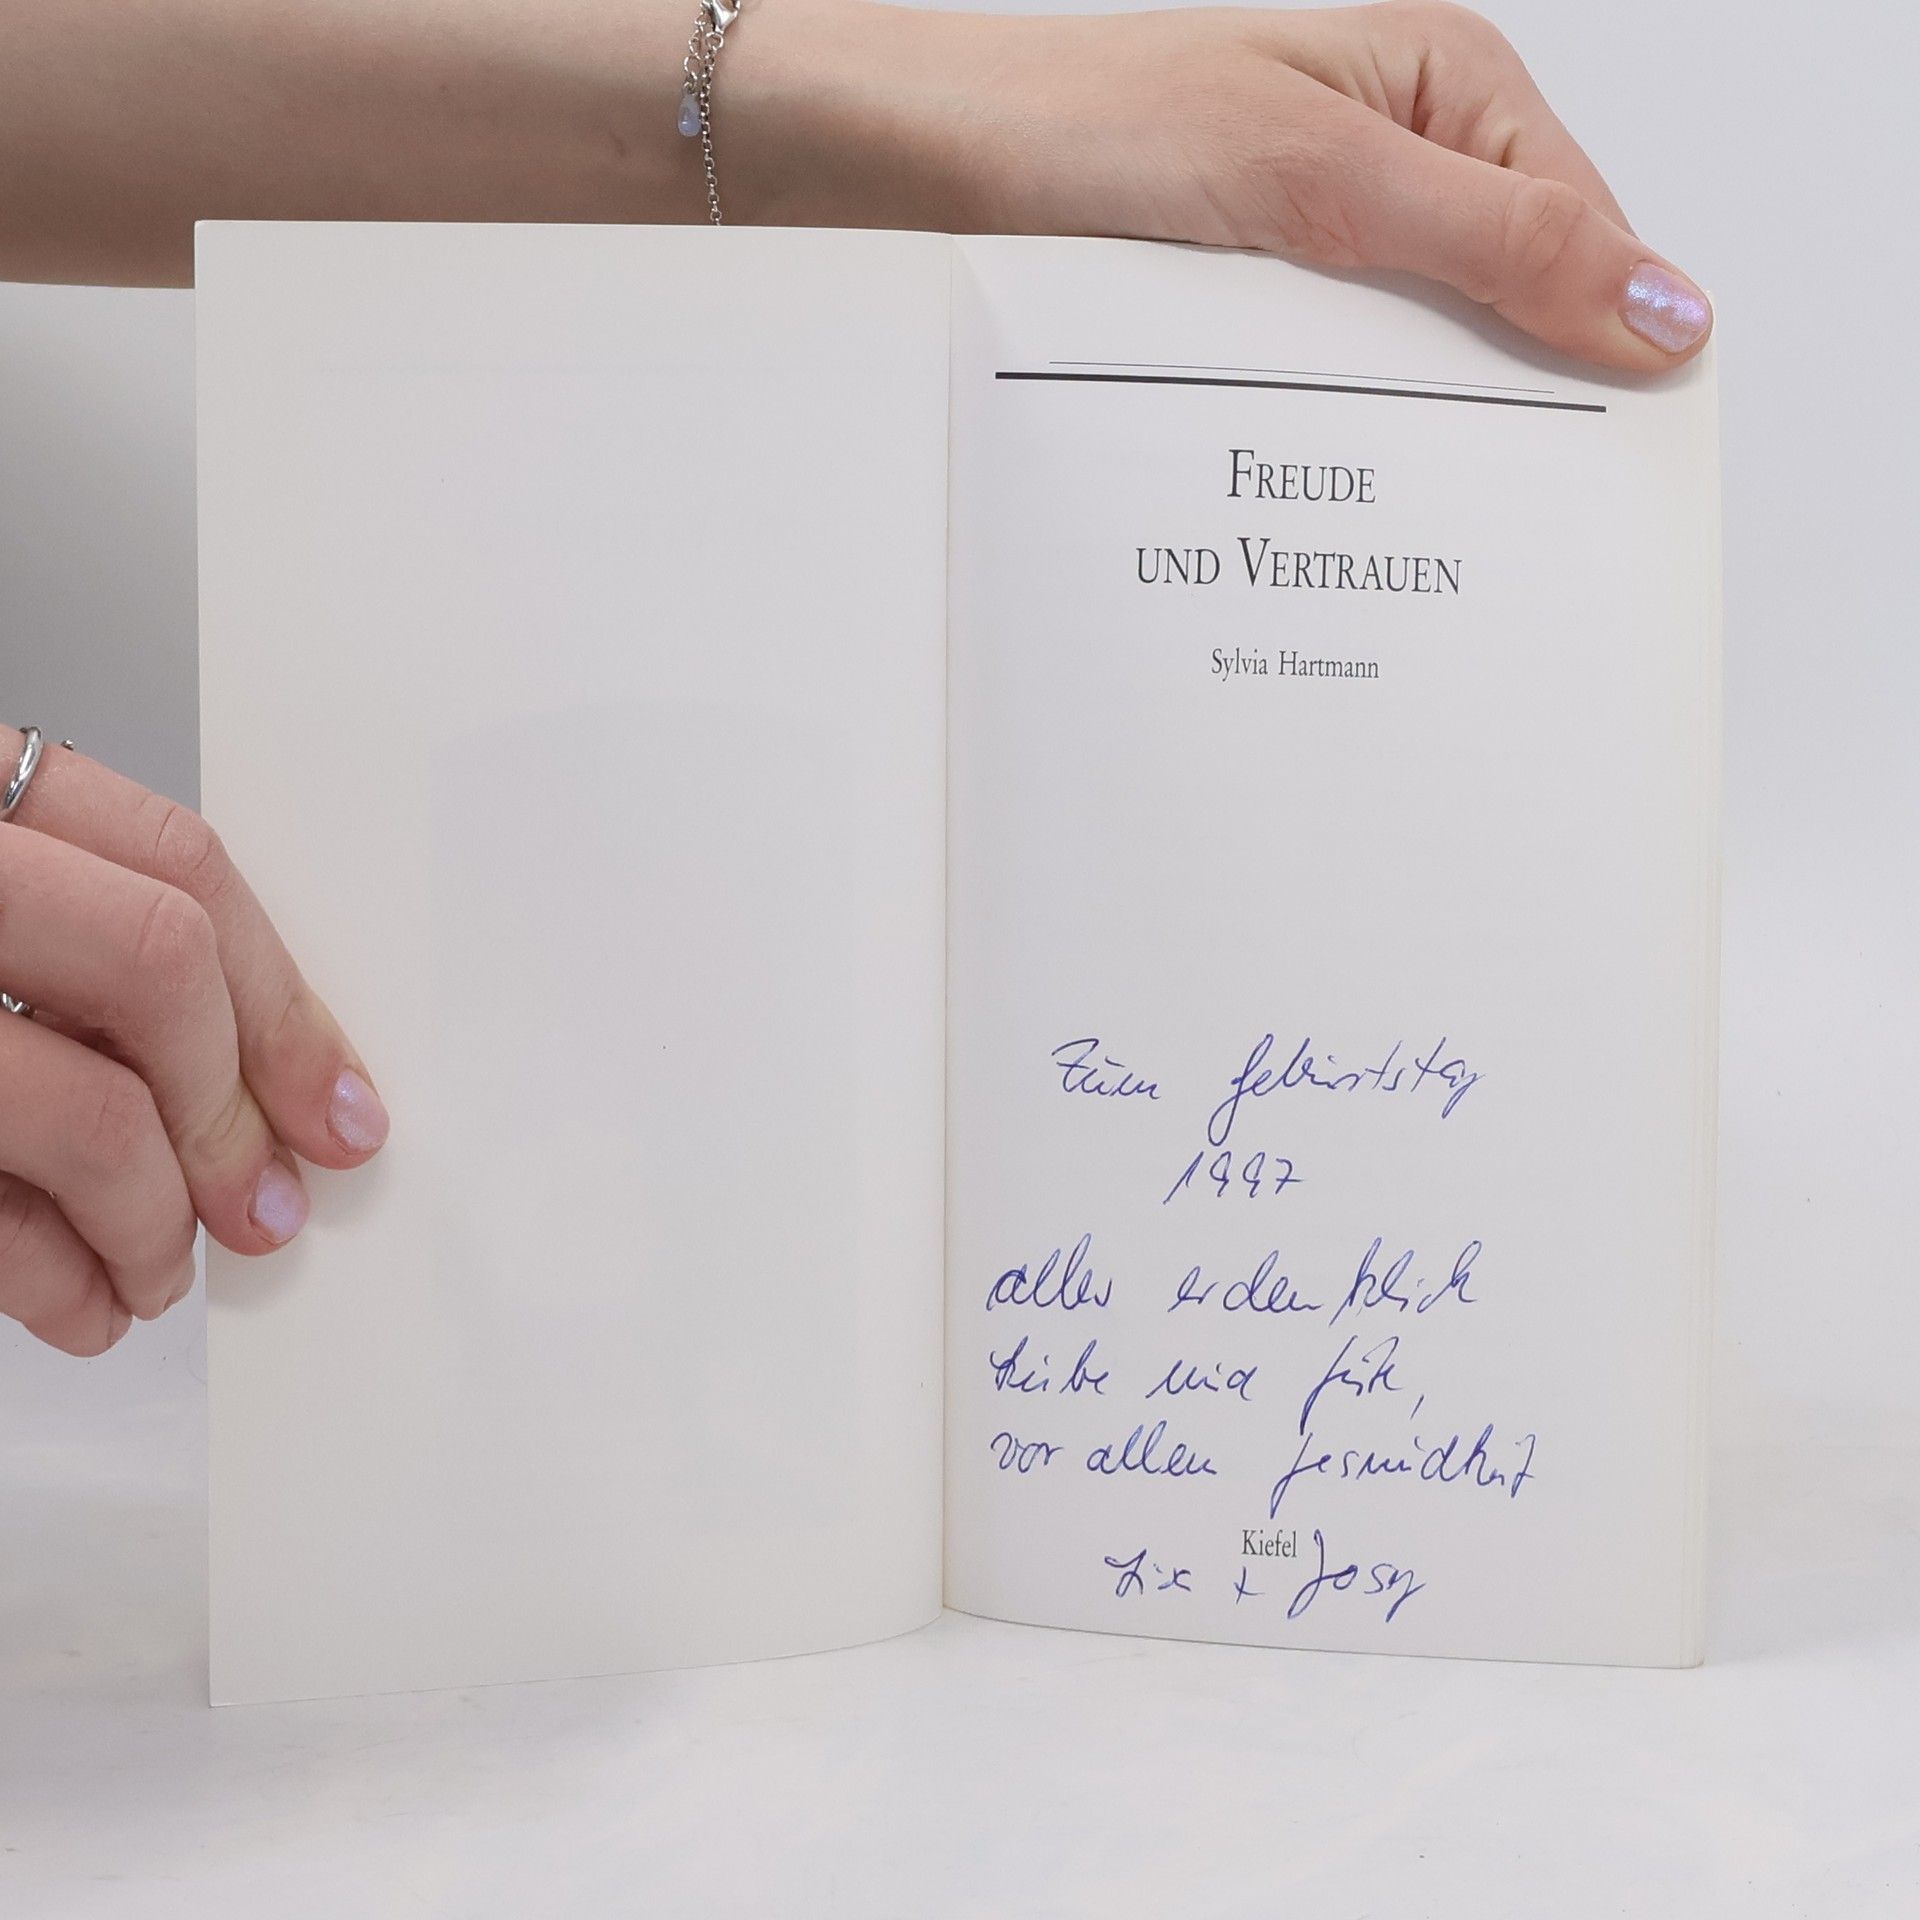 FREUDE
UND VERTRAUEN
Sylvia Hartmann
Zum Geburtstag
1997
alles erdenklich
Liebe und Gute,
vor allem Gesundheit
Kiefel
+ Josy